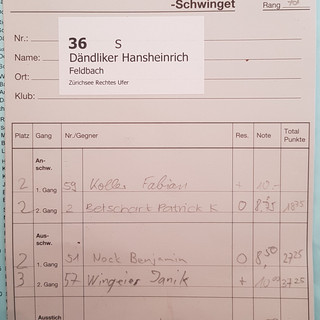 -Schwinget
Rang
Nr.: 36 S
Name: Dändliker Hansheinrich
Ort: Feldbach
Zürichsee Rechtes Ufer
Klub:
Platz Gang Nr./Gegner Res. Note Total Punkte
An-schw.
2 1. Gang 59 Koller Fabian + 10.-
2 2. Gang 2 Betschart Patrick K 0 8,75 18.75
Aus-schw.
2 1. Gang 51 Nock Benjamin 0 8,50 27.25
3 2. Gang 57 Wingeier Janik + 10.00 37.25
Ausstich